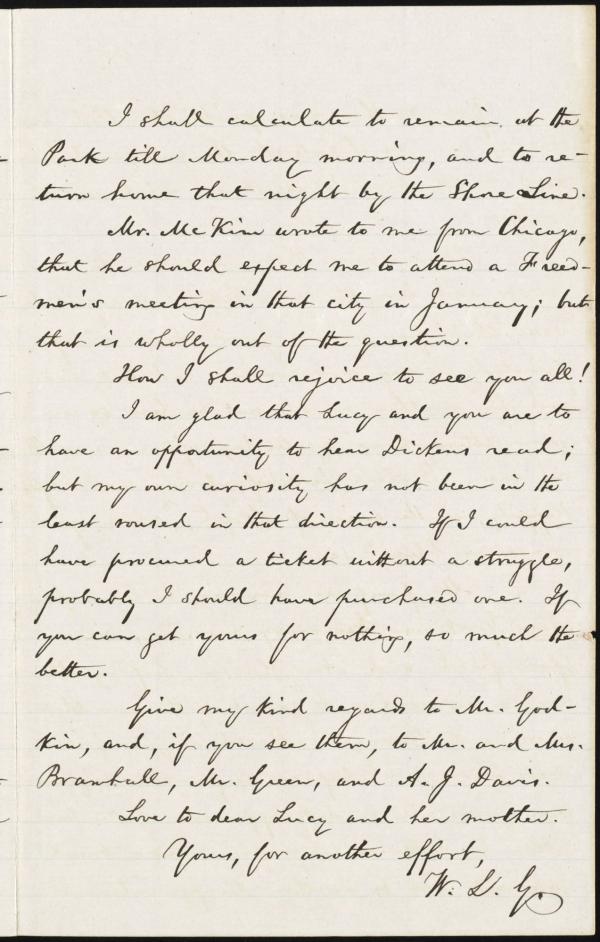 I shall calculate to remain at the
Park till Monday morning, and to re-
turn home that night by the Shore Line.
Mr. McKim wrote to me from Chicago,
that he should expect me to attend a Freed-
men's meeting in that city in January; but
that is wholly out of the question.
How I shall rejoice to see you all!
I am glad that Lucy and you are to
have an opportunity to hear Dickens read;
but my own curiosity has not been in the
least roused in that direction. If I could
have procured a ticket without a struggle,
probably I should have purchased one. If
you can get yours for nothing, so much the
better.
Give my kind regards to Mr. God-
kin, and, if you see them, to Mr. and Mrs.
Bramhall, Mr. Green, and A. J. Davis.
Love to dear Lucy and her mother.
Yours, for another effort,
W. L. G.